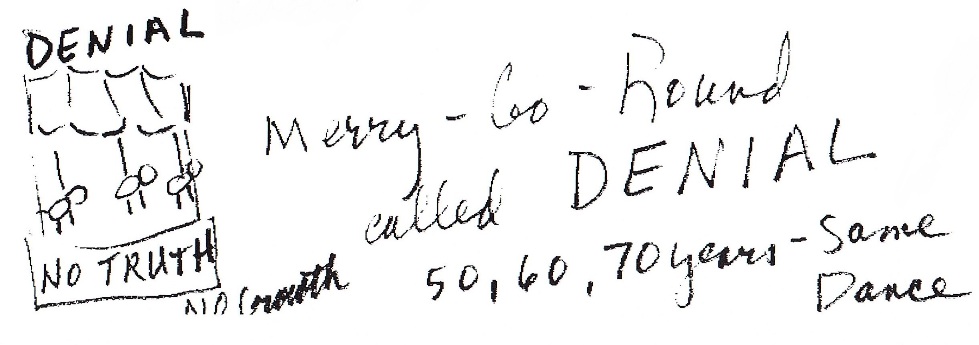 DENIAL
Merry-Go-Round
called DENIAL
NO TRUTH
NO Growth
50, 60, 70 years - Same
Dance